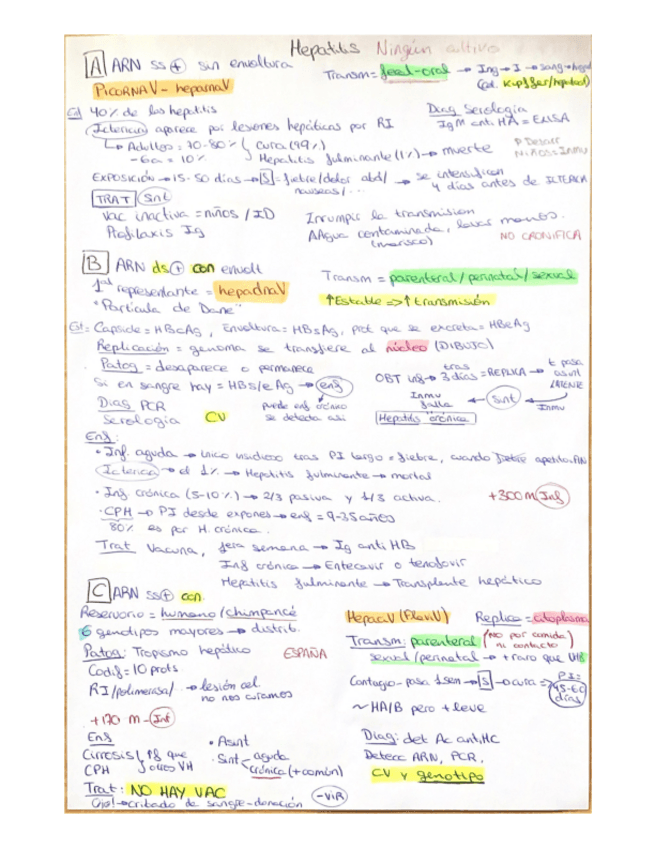 Hepatitis Ningún cultivo
A ARN ss ⊕ sin envoltura
Transm = fecal-oral → Ing → I → sang → hígad
PICORNAV - heparnaV
(cel. Kupffer/hepatocit)
40% de las hepatitis
Diag Serología
Ictericia aparece por lesiones hepáticas por RI
IgM anti HA = ELISA
↳ Adultos = 70-80% { cura (99%)
-6a = 10% Hepatitis fulminante (1%) → muerte
P Desarr
NIÑOS = Inmu
EXPOSICIÓN → 15-50 días → S = fiebre/dolor abd/ náuseas/... → se intensifican 4 días antes de ICTERICIA
TRAT Sint
Vac inactiva = niños / ID
Inrrumpir la transmision
Profilaxis Ig
AAgua contaminada, lavar manos.
(marisco)
NO CRONIFICA
B ARN ds ⊕ con envolt
Transm = parenteral/perinatal/sexual
1er representante = hepadnaV
↑Estable => ↑transmisión
"Partícula de Dane"
Est = Capside = HBcAg, Envoltura = HBsAg, prot que se excreta = HBeAg
Replicación = genoma se transfiere al núcleo (DIBUJO)
Patog = desaparece o permanece
Si en sangre hay = HBs/e Ag → enf
OBT inf → tras 3 días = REPLICA → t pasa asint LATENTE
Diag PCR
puede enf crónico
Inmu falla ← sint ← Inmu
Serología CV
se detecta asi
Hepatitis crónica
Enf:
• Inf. aguda → inico insidioso tras PI largo = fiebre,
Ictericia → el 1% → Hepatitis fulminante → mortal
• Inf crónica (5-10%) → 2/3 pasiva y 1/3 activa.
+300 M Inf
• CPH → PI desde expones → enf = 9-35 años
80% es por H. crónica.
Trat Vacuna, 1era semana → Ig anti HB
Inf crónica → Entecavir o tenofovir
Hepatitis fulminante → Transplante hepático
C ARN ss ⊕ con.
Reservorio = humano/chimpancé
HepaciV (FlaviV) Replica = citoplasma
6 genotipos mayores → distrib.
Transm: parenteral (no por comida ni contacto)
Patog: Tropismo hepático ESPAÑA
sexual/perinatal → + raro que VHB
Codif = 10 prots
Contagio - pasa 1 sem → S → o cura => P.I = 45-60 días
RI/polimerasa/ → lesión cel
no nos curamos
~ HA/B pero + leve
+170 M - Inf
Enf
• Asint
Diag: det Ac anti HC
Cirrosis } = q que
• Sint < aguda
Detecc ARN, PCR.
CPH otros VH
crónica (+común)
CV y genotipo
Trat: NO HAY VAC
Ctrol → cribado de sangre-donación
-VIR